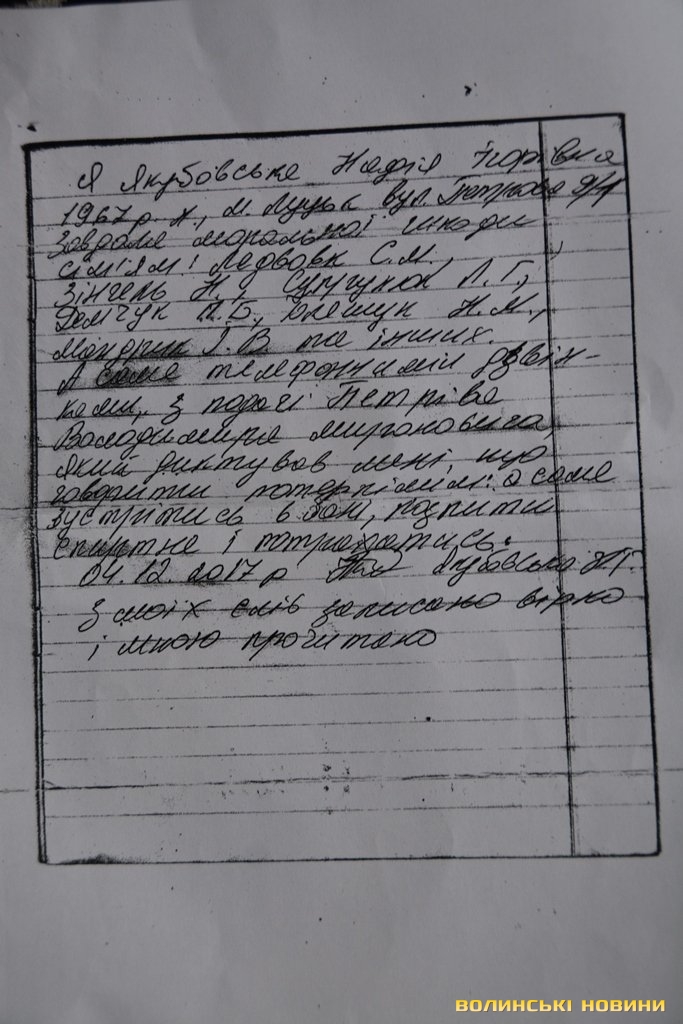 Я Якубовська Надія Ігорівна
1967 р. н., м. Луцьк вул.
Завдала моральної шкоди
сім'ям: Ледвовк С.М.,
Зінгель Н., Л.Г.,
Демчук Н.Б., Н.М.,
Мандрик І.В та інших.
А саме телефонними дзвін-
ками, з подачі Петріва
Володимира Мироновича,
який диктував мені, що
говорити потерпілим: а саме
зустрітись в бані, попити
спиртне і потрахатись.
04.12.2017 р Якубовська Н.І.
З моїх слів записано вірно
і мною прочитано
ВОЛИНСЬКІ НОВИНИ